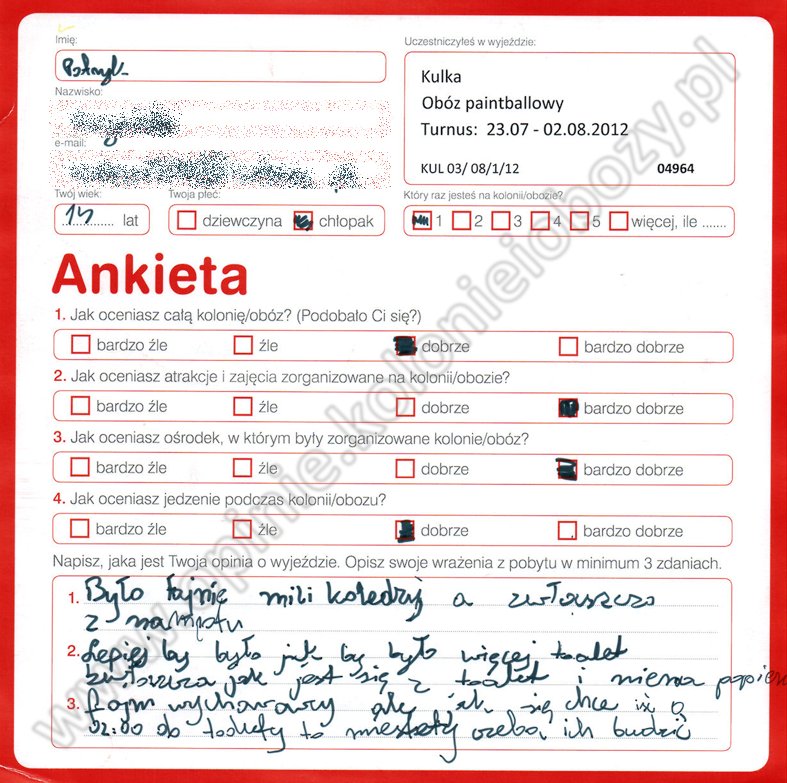 Imię:
Patryk
Nazwisko:
e-mail:
Uczestniczyłeś w wyjeździe:
Kulka
Obóz paintballowy
Turnus: 23.07 - 02.08.2012
KUL 03/ 08/1/12 04964
Twój wiek:
lat
Twoja płeć:
dziewczyna chłopak
Który raz jesteś na kolonii/obozie?
1 2 3 4 5 więcej, ile .......
Ankieta
1. Jak oceniasz całą kolonię/obóz? (Podobało Ci się?)
bardzo źle źle dobrze bardzo dobrze
2. Jak oceniasz atrakcje i zajęcia zorganizowane na kolonii/obozie?
bardzo źle źle dobrze bardzo dobrze
3. Jak oceniasz ośrodek, w którym były zorganizowane kolonie/obóz?
bardzo źle źle dobrze bardzo dobrze
4. Jak oceniasz jedzenie podczas kolonii/obozu?
bardzo źle źle dobrze bardzo dobrze
Napisz, jaka jest Twoja opinia o wyjeździe. Opisz swoje wrażenia z pobytu w minimum 3 zdaniach.
1. Było fajnie mili koledzy a zwłaszcza
z namiotu
2. Lepiej by było jak by było więcej toalet
zwłaszcza jak jest się z toalet i niema papieru
3. fajni wychowawcy ale jak się chce iść o
02:00 do toalety to niestety trzeba ich budzić
www.opinie.kolonieiobozy.pl